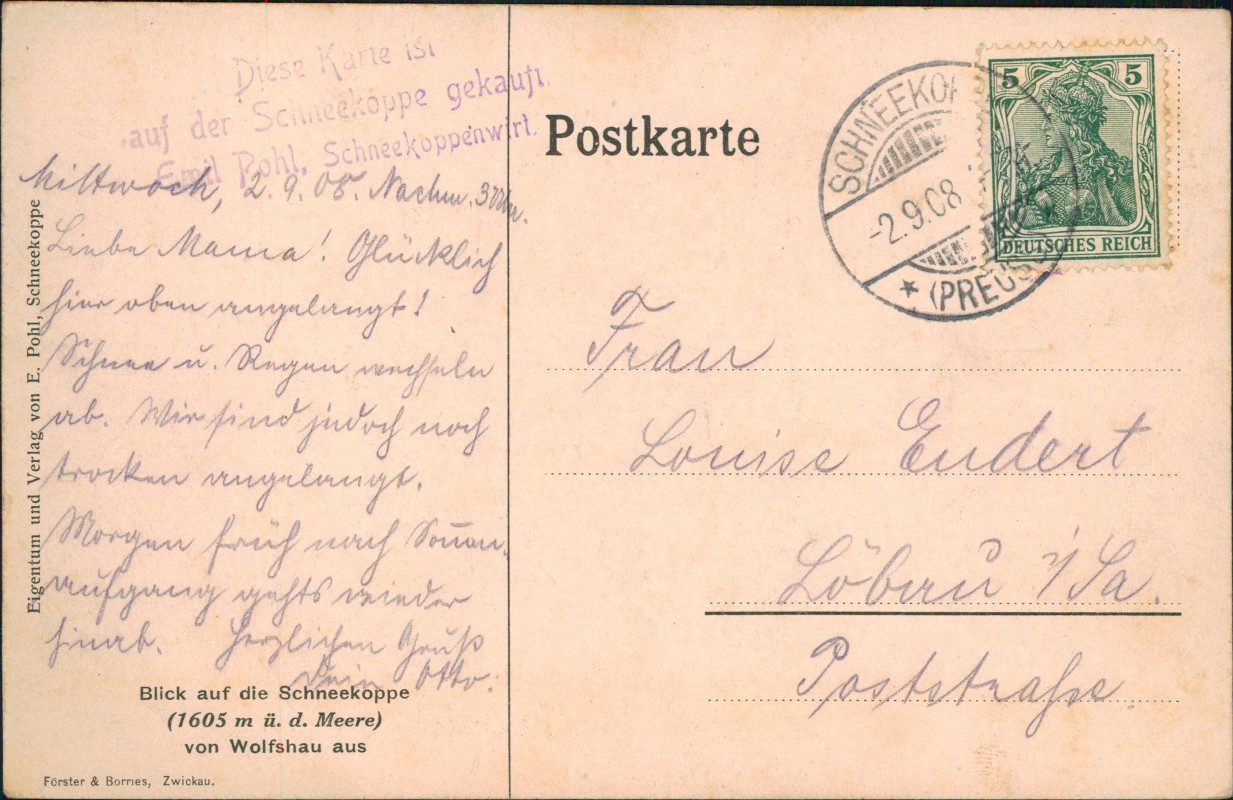 Diese Karte ist
auf der Schneekoppe gekauft.
Emil Pohl, Schneekoppenwirt.
Mittwoch, 2.9.08. Nachm. 3 Uhr.
Liebe Mama! Glücklich
hier oben angelangt!
Schnee u. Regen wechseln
ab. Wir sind jedoch noch
trocken angelangt.
Morgen früh nach Sonnen-
aufgang gehts wieder
hinab. Herzlichen Gruß
Dein Otto.
Eigentum und Verlag von E. Pohl, Schneekoppe
Blick auf die Schneekoppe
(1605 m ü. d. Meere)
von Wolfshau aus
Förster & Borries, Zwickau.
Postkarte
SCHNEEKOP
-2.9.08
* (PREUSS
5 5
DEUTSCHES REICH
Frau
Louise Endert
Löbau i/Sa.
Poststraße